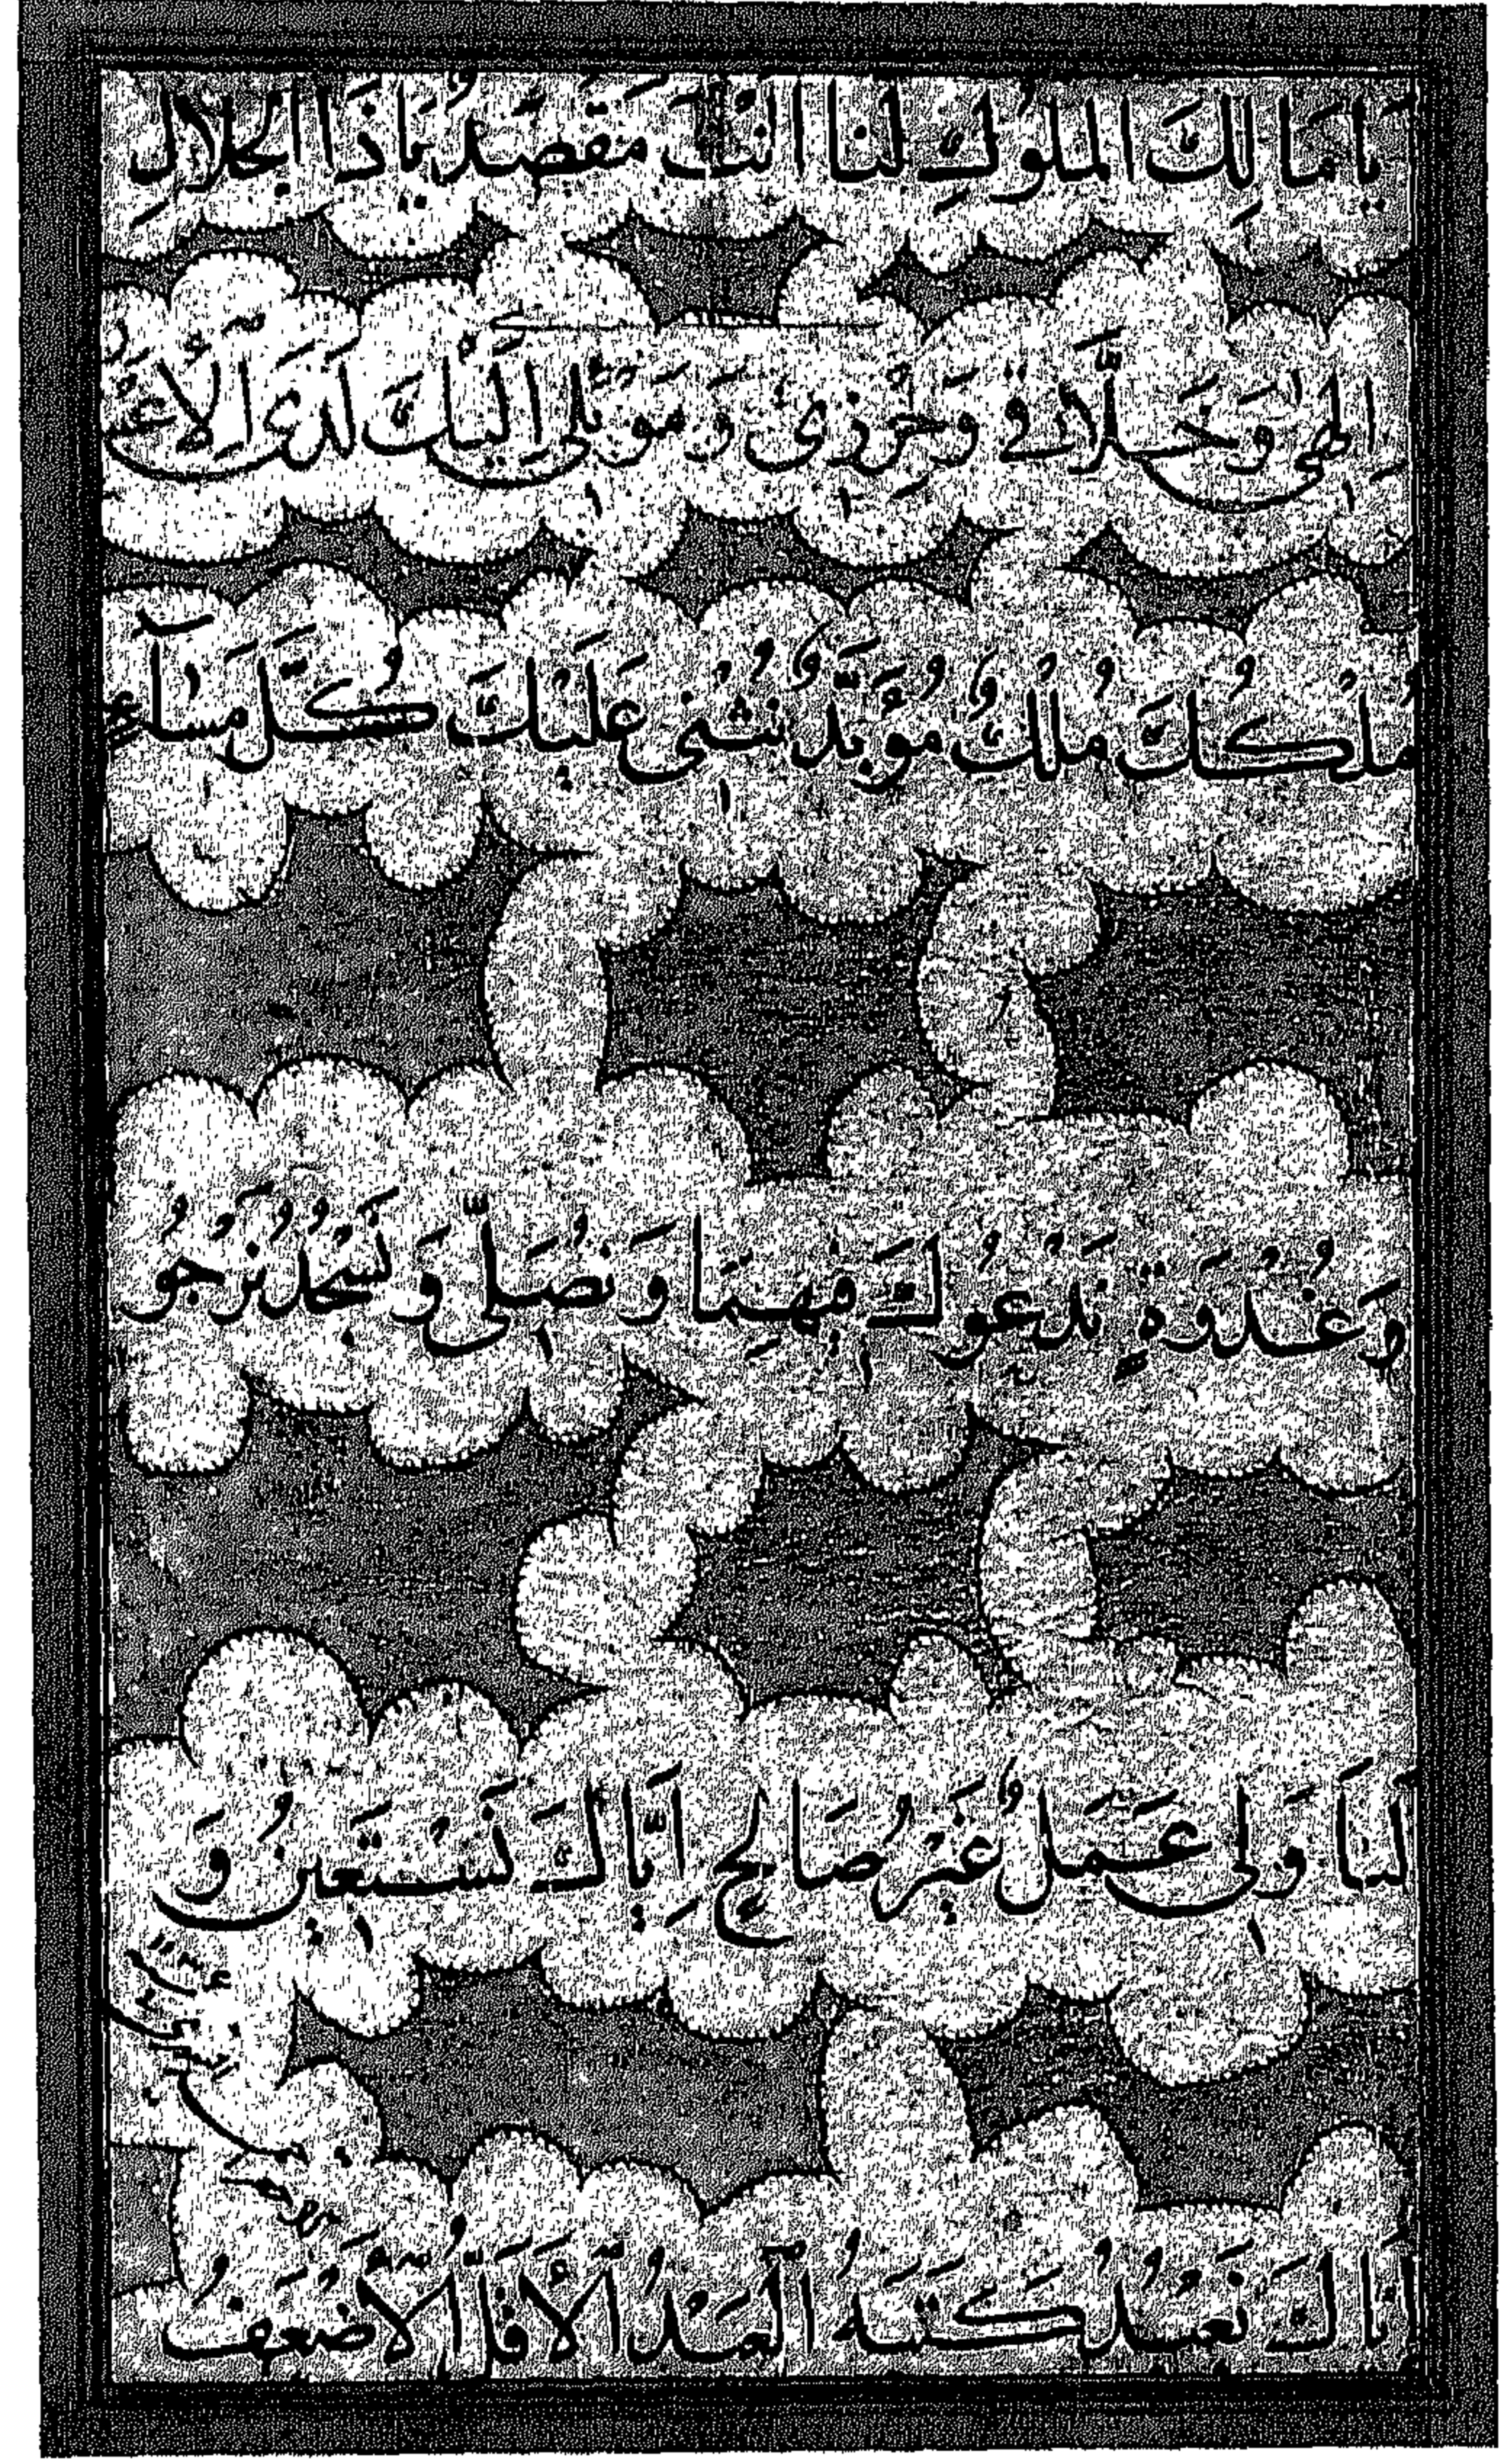 يَا مَالِكَ الْمُلُوكِ لَنَا أَنْتَ مَقْصَدُ يَا ذَا الْجَلَالِ
إِلٰهِي وَخَلَّاقِي وَحِرْزِي وَمَوْئِلِي إِلَيْكَ لَدَى الْإِعْسَارِ
مُلْكُكَ مُلْكٌ مُؤَبَّدٌ نُثْنِي عَلَيْكَ كُلَّ مَسَاءٍ
وَغُدْوَةٍ نَدْعُوكَ فِيهِمَا وَنُصَلِّي وَنَسْجُدُ نَرْجُو
لَنَا وَلِي عَمَلٌ غَيْرُ صَالِحٍ إِيَّاكَ نَسْتَعِينُ وَ
إِيَّاكَ نَعْبُدُ كَتَبَهُ الْعَبْدُ الْأَقَلُّ الْأَضْعَفُ